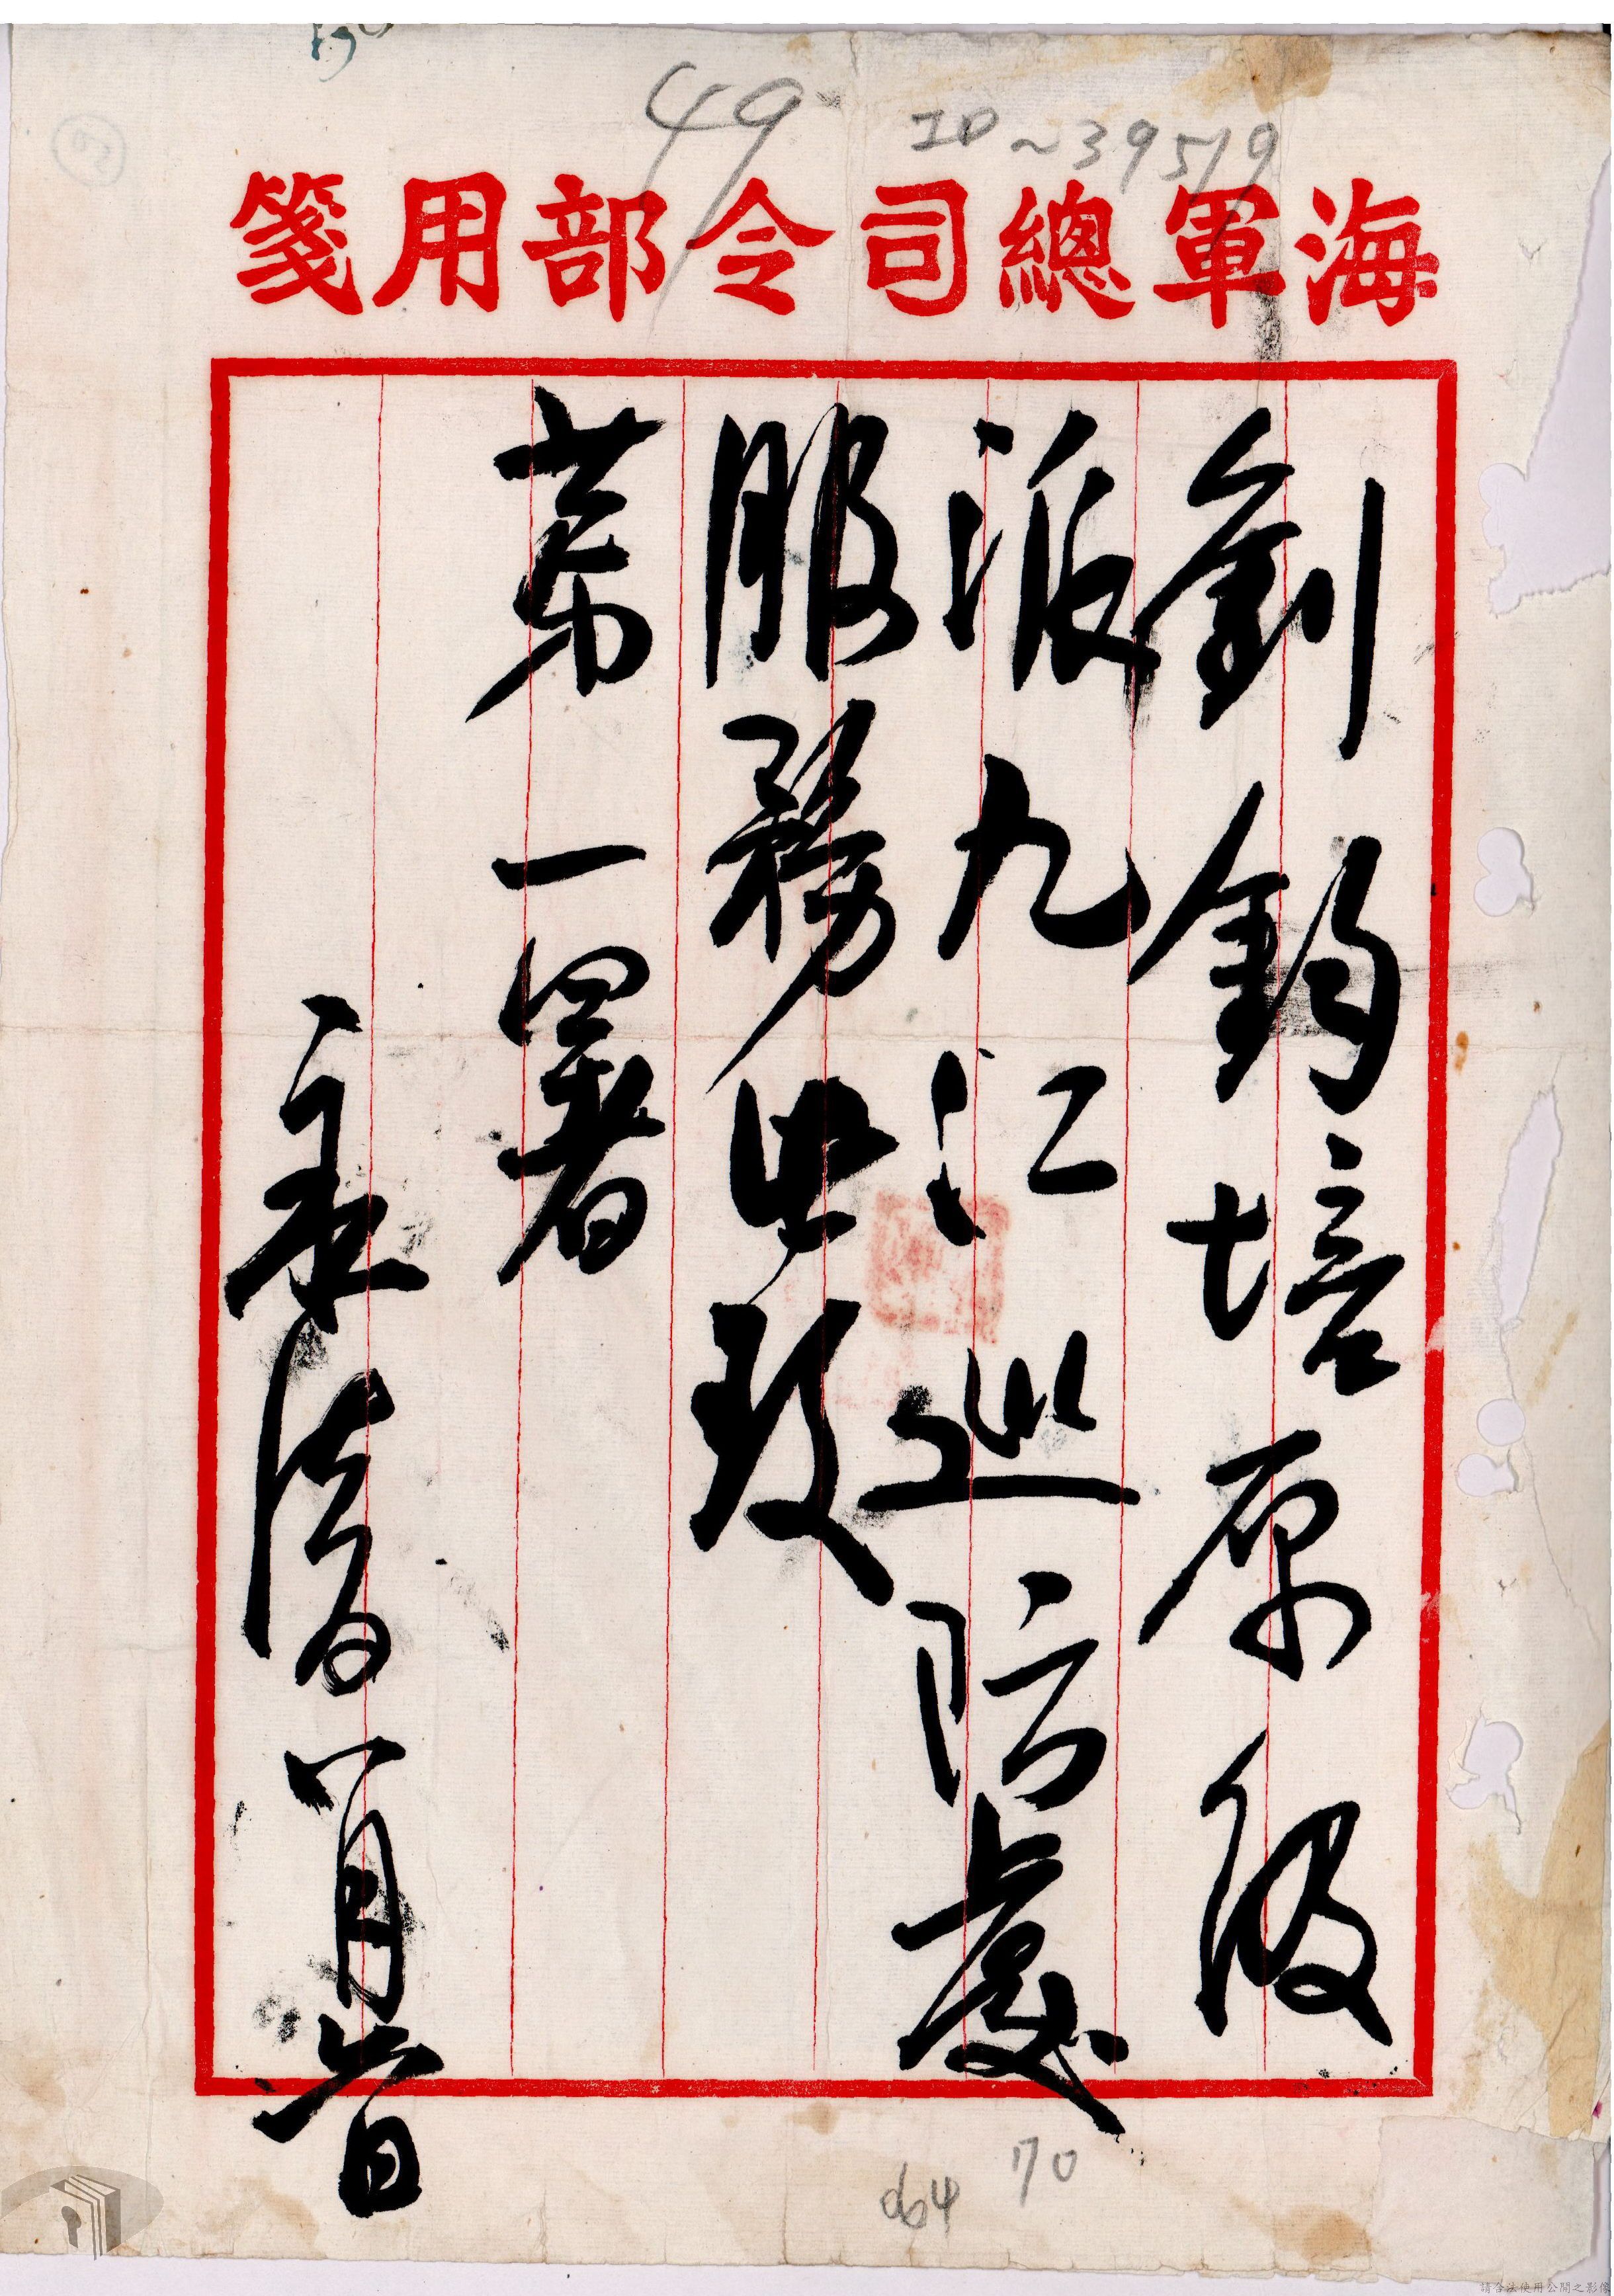 49
ID~39519
海軍總司令部用箋
劉鈞培原級
派九江巡防處
服務此致
第一署
永清
70
064
請合法使用公開之影像